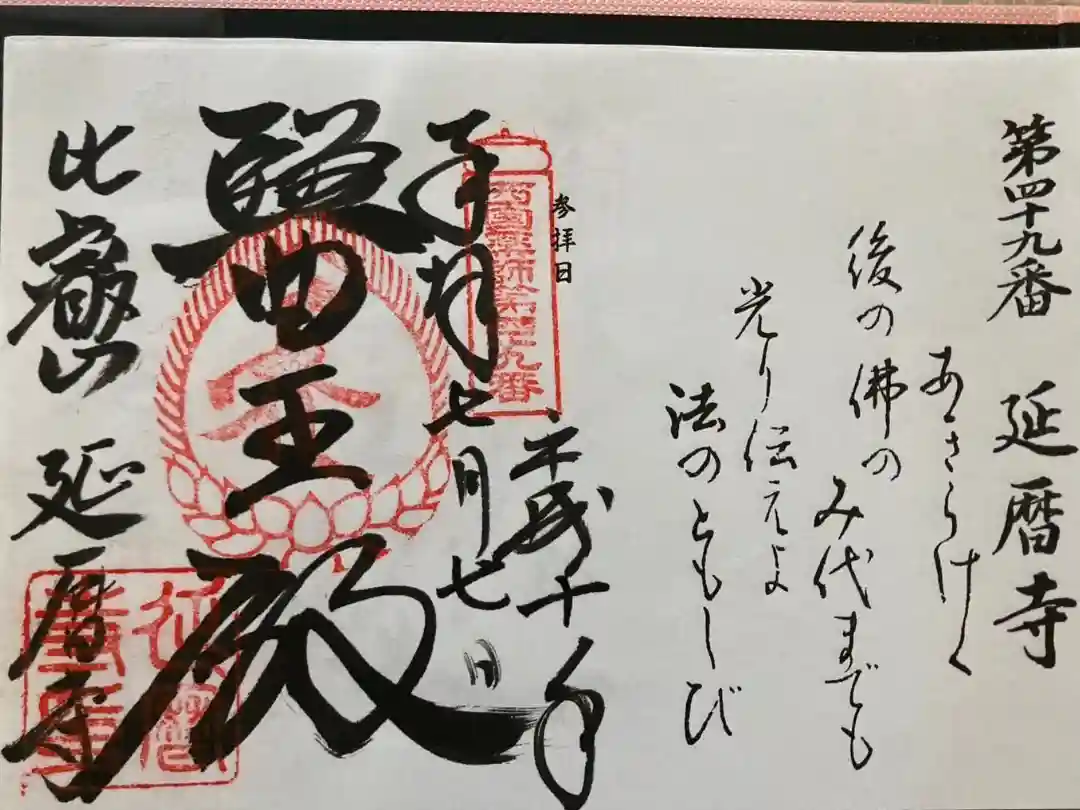 第四十九番 延暦寺
あきらけく
後の佛の
み代までも
光り伝えよ
法のともしび
参拝日
平成十年
西國薬師第四十九番
奉拝 七月七日
醫王殿
比叡山 延暦寺